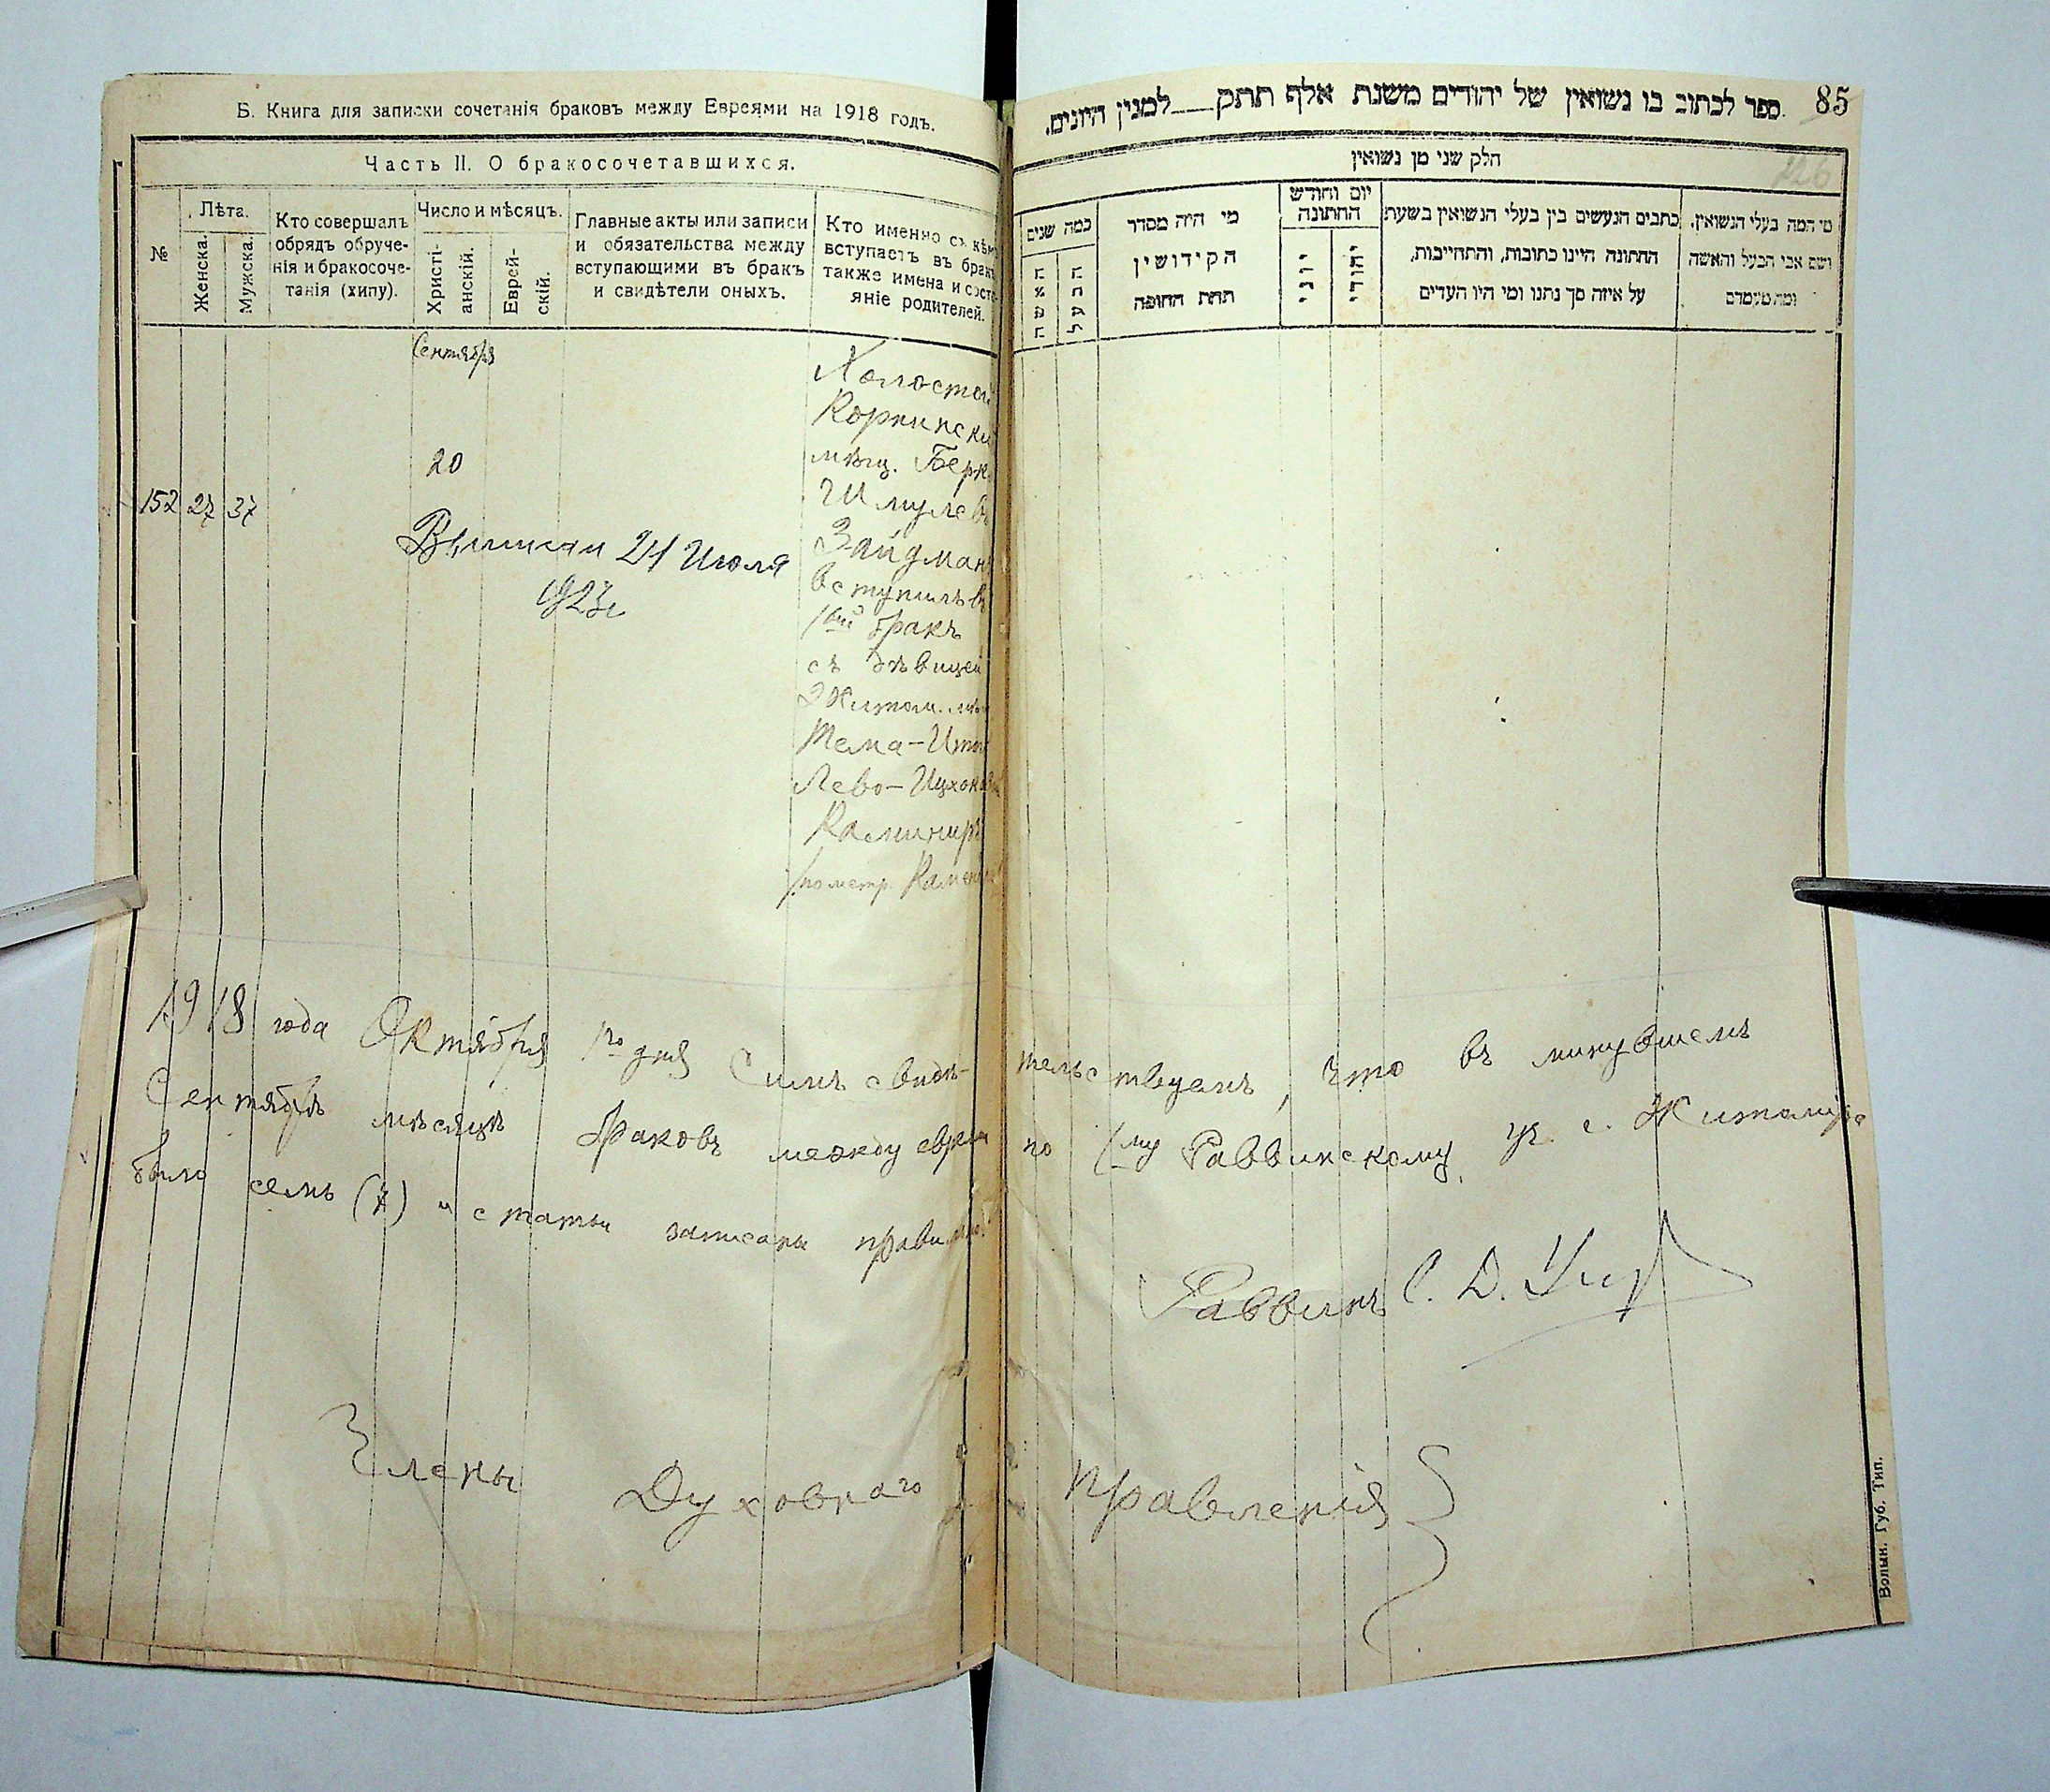 Б. Книга для записки сочетанія браковъ между Евреями на 1918 годъ.
Часть II. О бракосочетавшихся.
№
Лѣта.
Женска.
Мужска.
Кто совершалъ
обрядъ обруче-
нія и бракосоче-
танія (хипу).
Число и мѣсяцъ.
Христі-
анскій.
Еврей-
скій.
Главные акты или записи
и обязательства между
вступающими въ бракъ
и свидѣтели оныхъ.
Кто именно съ кѣмъ
вступаетъ въ бракъ
также имена и состо-
яніе родителей.
Сентября
20
152 27 37
Холостой
Коркинскій
мѣщ. Берко
Шмулев
Зайдман
вступилъ въ
1ый бракъ
съ дѣвицей
Житом. мѣщ
Тема-Ита
Лево-Ицхоков
Каминиръ
/по метр. Камен
Выписан 21 Июля
1923г
1918 года Октября 1го дня Симъ свидѣ-тельствуемъ, что въ минувшемъ
Сентябрѣ мѣсяцѣ браковъ между евреями по 1му Раввинскому уч. г. Житомира
было семь (7) и статьи записаны правильно.
Раввинъ С. Д.
Члены Духовнаго Правленія
ספר לכתוב בו נשואין של יהודים משנת אלף תתק___למנין היונים.
85
226
חלק שני מן נשואין
מי המה בעלי הנשואין,
ושם אבי הבעל והאשה
ומה מעמדם
כתבים הנעשים בין בעלי הנשואין בשעת
החתונה היינו כתובות, והתחייבות,
על איזה סך נתנו ומי היו העדים
יום וחודש
החתונה
יהודי
יוני
מי היה מסדר
הקידושין
תחת החופה
כמה שנים
הבעל
האשה
Волын. Губ. Тип.